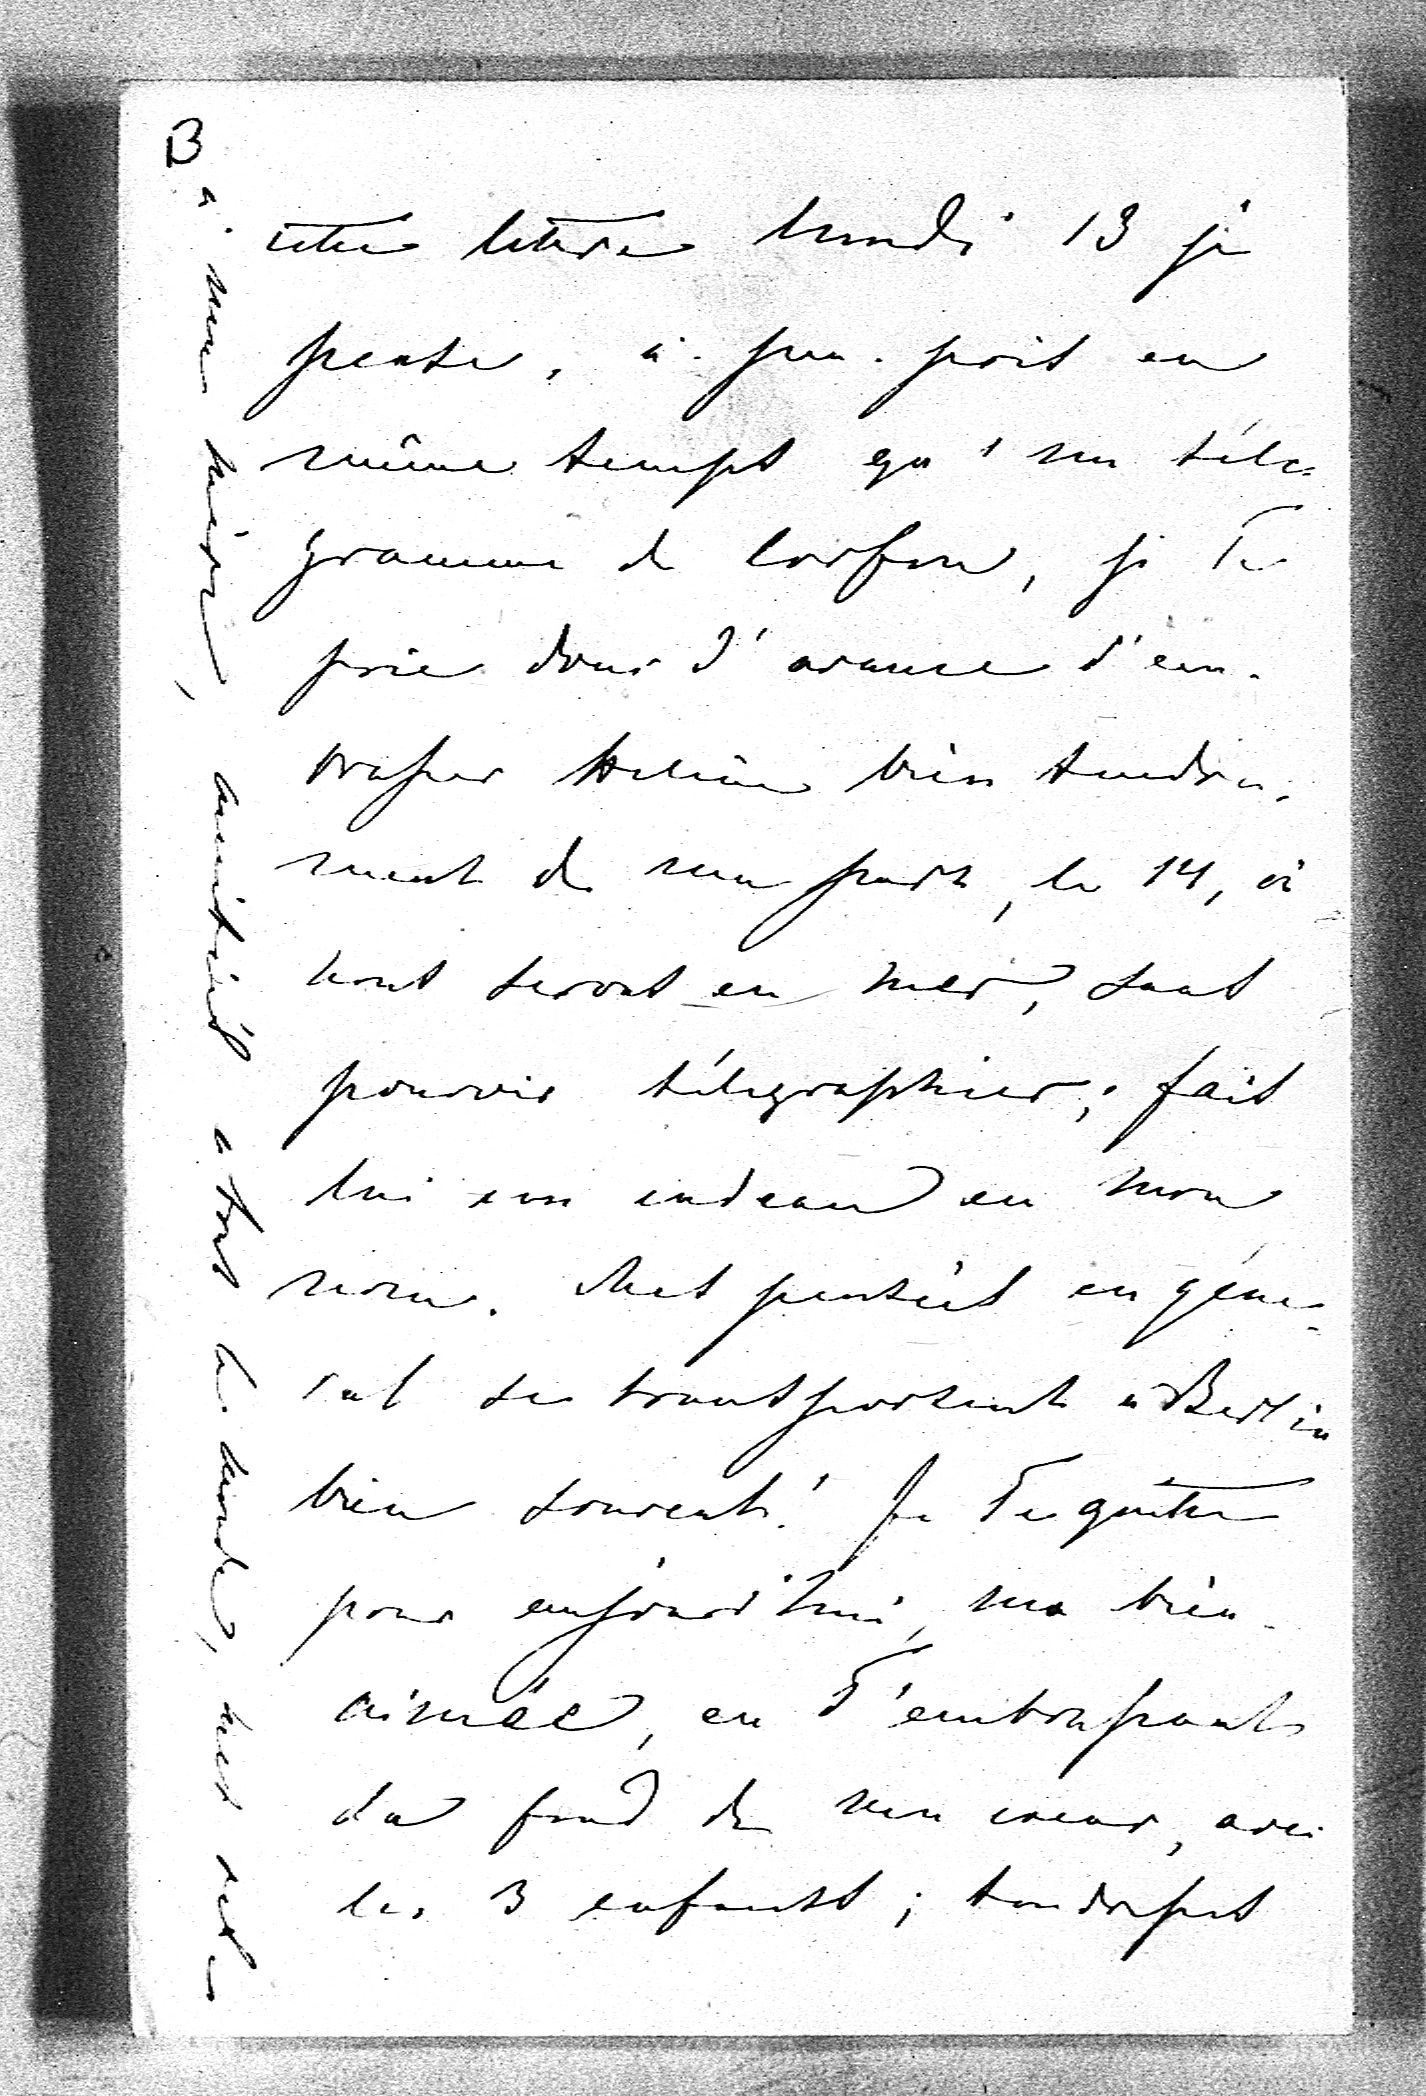 cette lettre lundi 13 je
pense, à peu près en
même temps qu'un télé-
gramme de Corfou, je Te
prie donc d'avance d'em-
brasser Hélène bien tendre-
ment de ma part, le 14, où
nous serons en mer, sans
pouvoir télégraphier; fais
lui un cadeau en mon
nom. Mes pensées en géné-
ral se transportent à Berlin
bien souvent! Je Te quitte
pour aujourd'hui, ma bien-
aimée, en T'embrassant
du fond de mon coeur, avec
les 3 enfants; tendresses
à mon frère, amitiés à tout le monde,
B